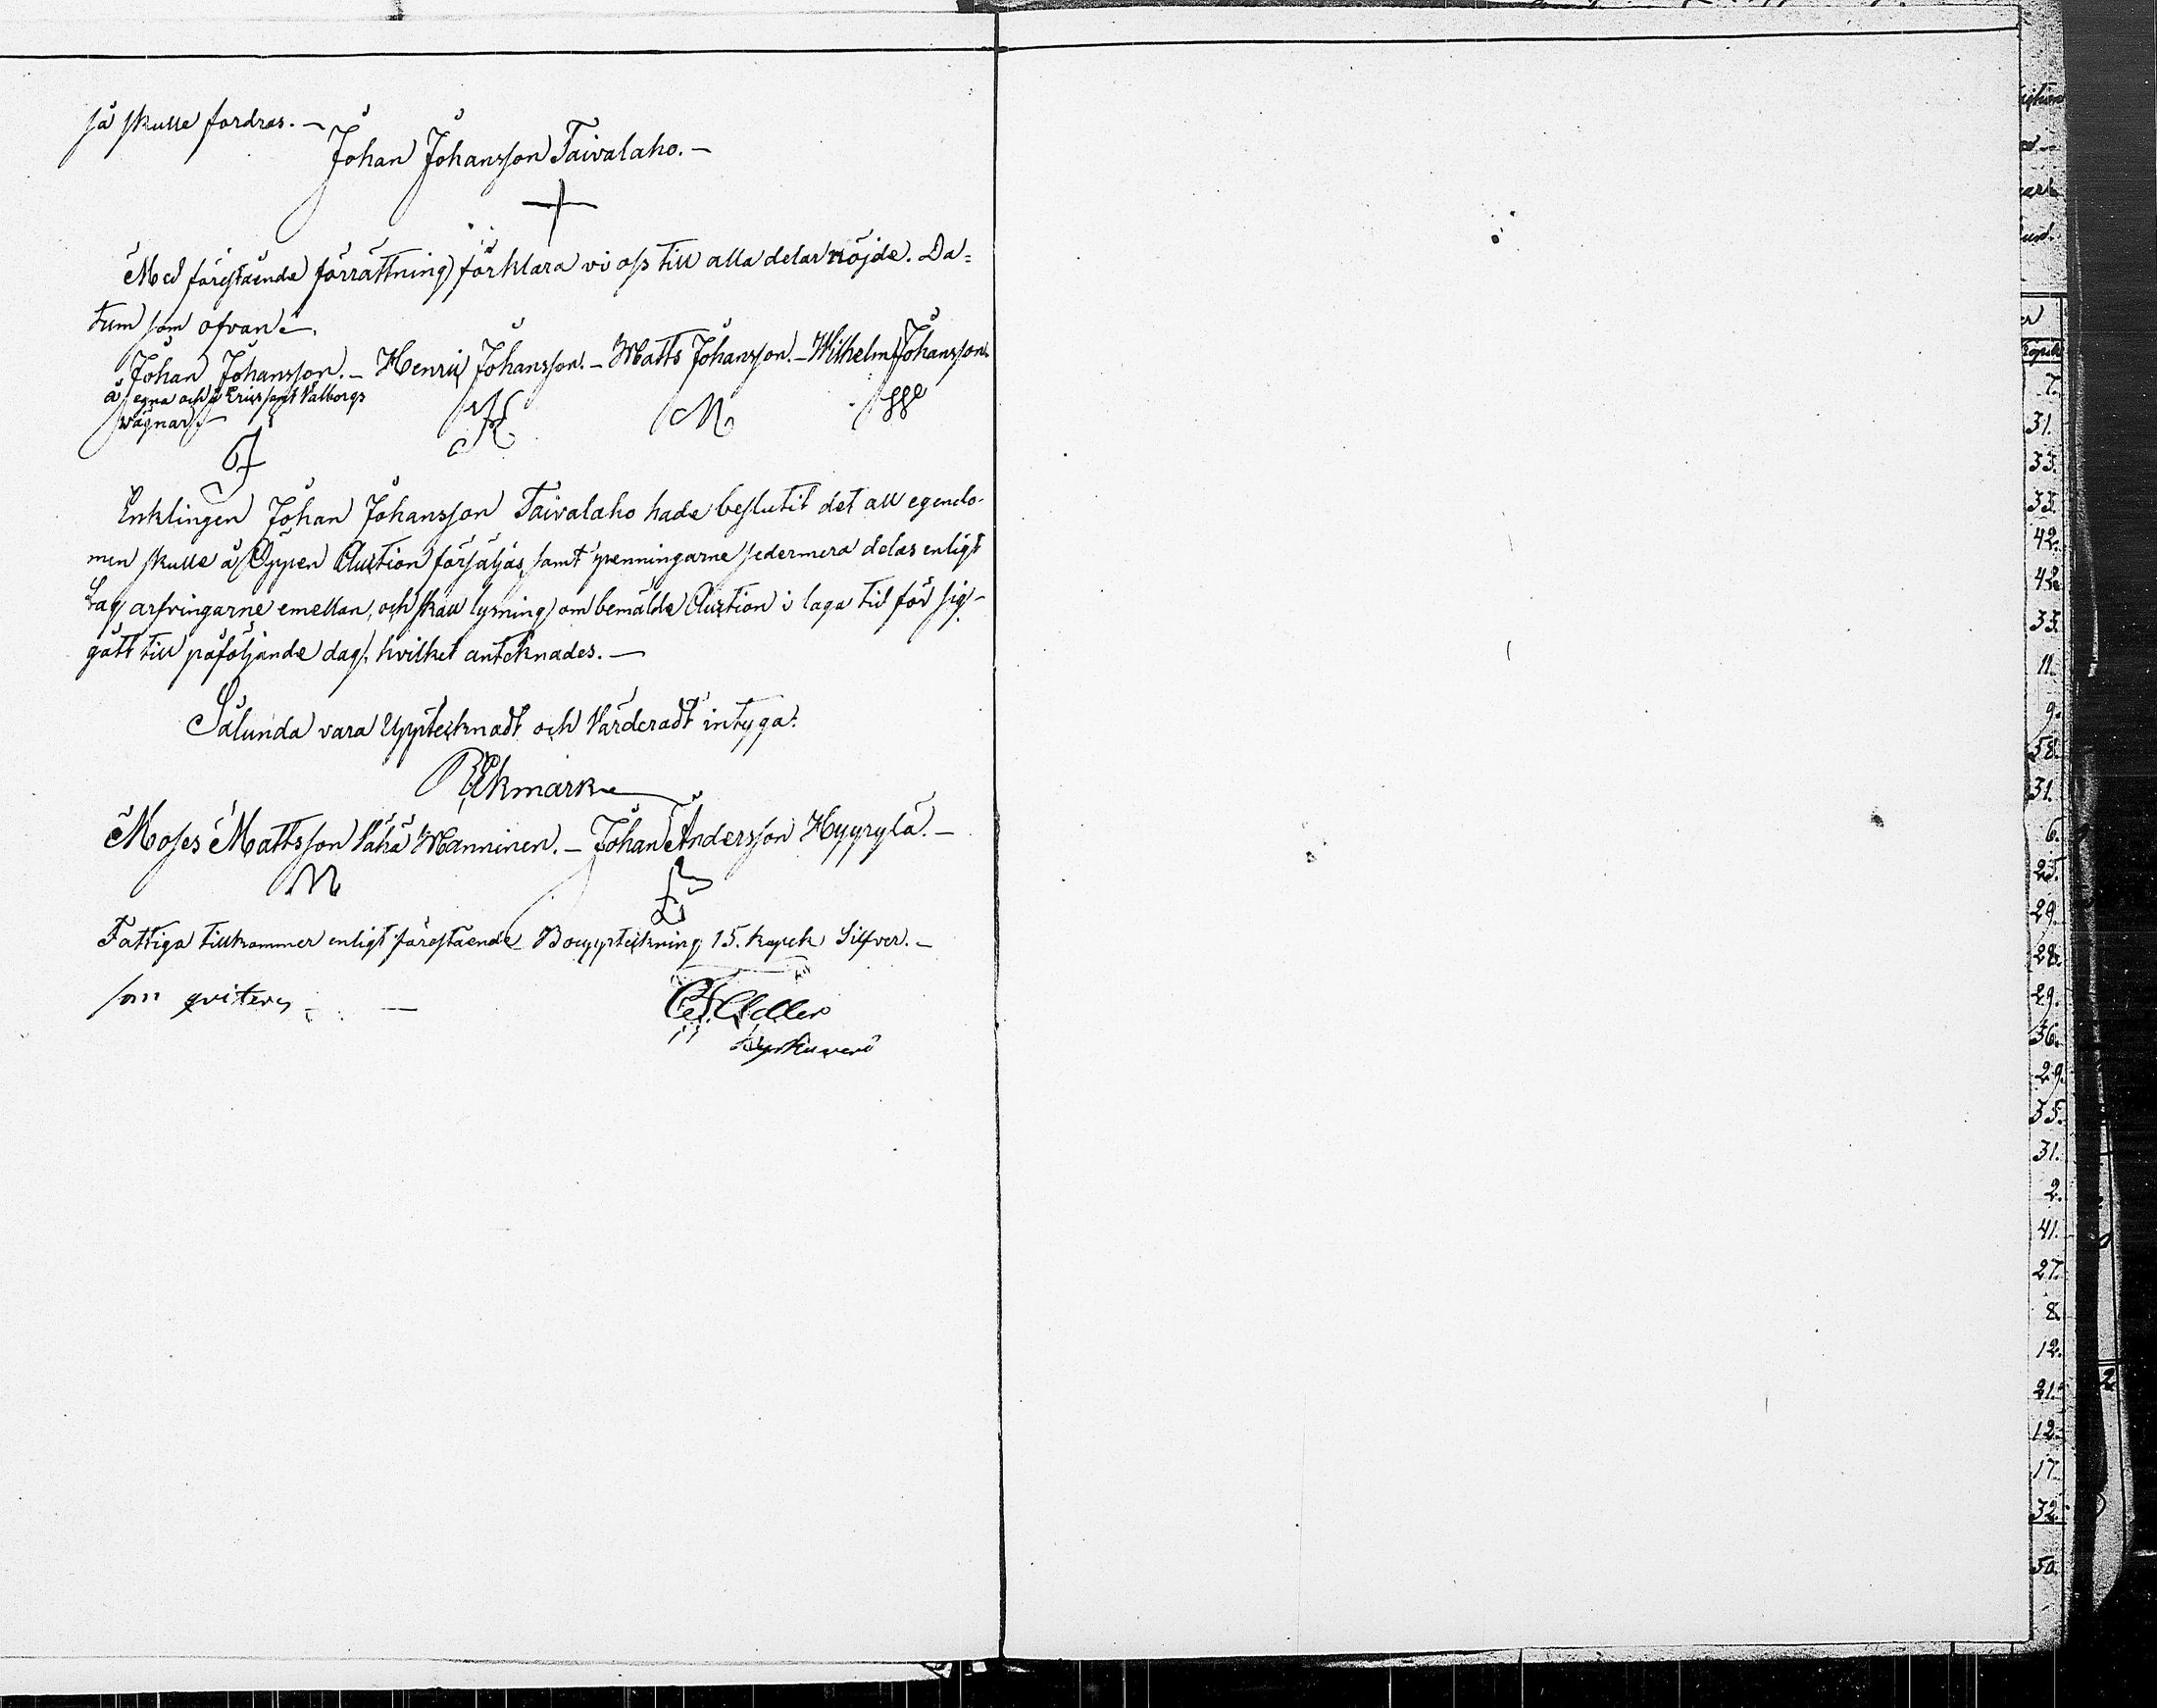 så skulle fordras. —
Johan Johansson Taivalaho. —
Med föreståënde förrättning förklara vi oss till alla delar nöjde. Da=
tum som ofvan. —
Johan Johansson. — Henric Johansson. — Matts Johansson. — Wilhelm Johansson.
å egna och å Erics samt Valborgs
vägnar. —
Enklingen Johan Johansson Taivalaho hade beslutit det all egendo-
men skulle å Öppen Auction försäljas, samt penningarne sedermera delas enligt
Lag arfvingarne emellan, och skall lysning om bemälde Auction i laga tid för sig-
gått till påföljande dag, hvilket antecknades. —
Sålunda vara Upptecknadt och Värderadt intyga:
Ekmark
Moses Mattsson Vähä Manninen. — Johan Andersson Hyyrylä. —
M
Fattiga tillkommer enligt föreståënde Bouppteckning 15. kopek Silfver. —
som qviteras
Adler
Kyrkoverd
7.
31.
33.
33.
42.
42.
33.
11.
9.
58.
31.
6.
25.
29.
28.
29.
36.
29.
35.
31.
2.
41.
27.
8.
12.
21.
12.
17.
32.
50.